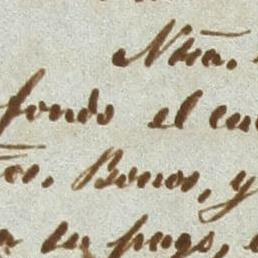 Ntra.
fondo el cu
Bonos, y
a su pago,